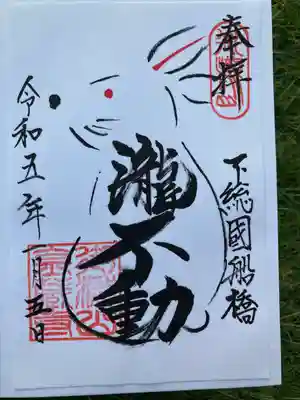 奉拝
下総國船橋
瀧不動
令和五年
一月五日